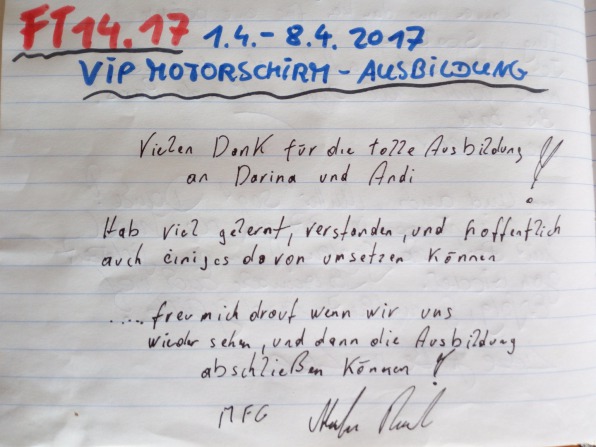 FT14.17 1.4.-8.4.2017
VIP MOTORSCHIRM-AUSBILDUNG
Vielen Dank für die tolle Ausbildung
an Darina und Andi !
Hab viel gelernt, verstanden, und hoffentlich
auch einiges davon umsetzen können
..... freu mich drauf wenn wir uns
wieder sehen, und dann die Ausbildung
abschließen können !
MFG